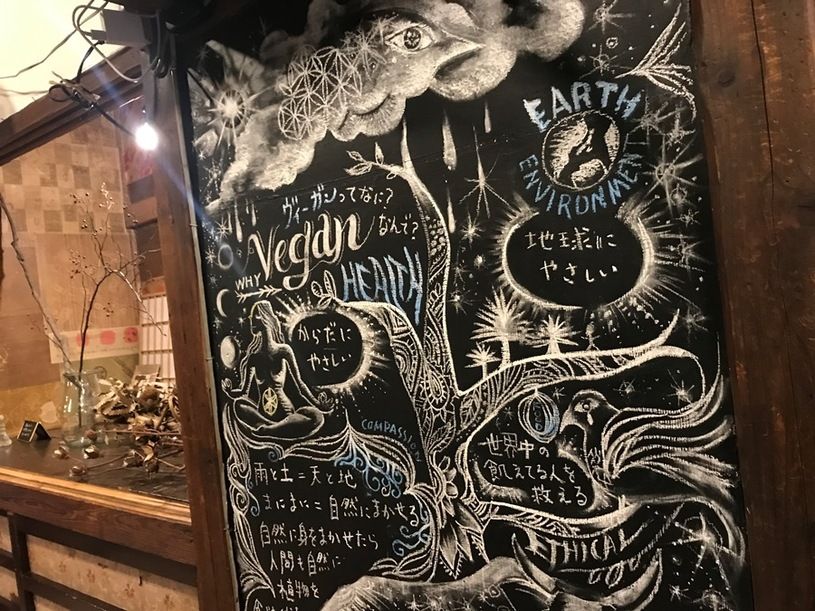 EARTH
ENVIRONMENT
地球に
やさしい
ヴィーガンってなに?
なんで?
WHY
Vegan
HEALTH
からだに
やさしい
COMPASSION
世界中の
飢えてる人を
救える
ETHICAL
雨と土=天と地
まにまに=自然にまかせる
自然に身をまかせたら
人間も自然に
植物を